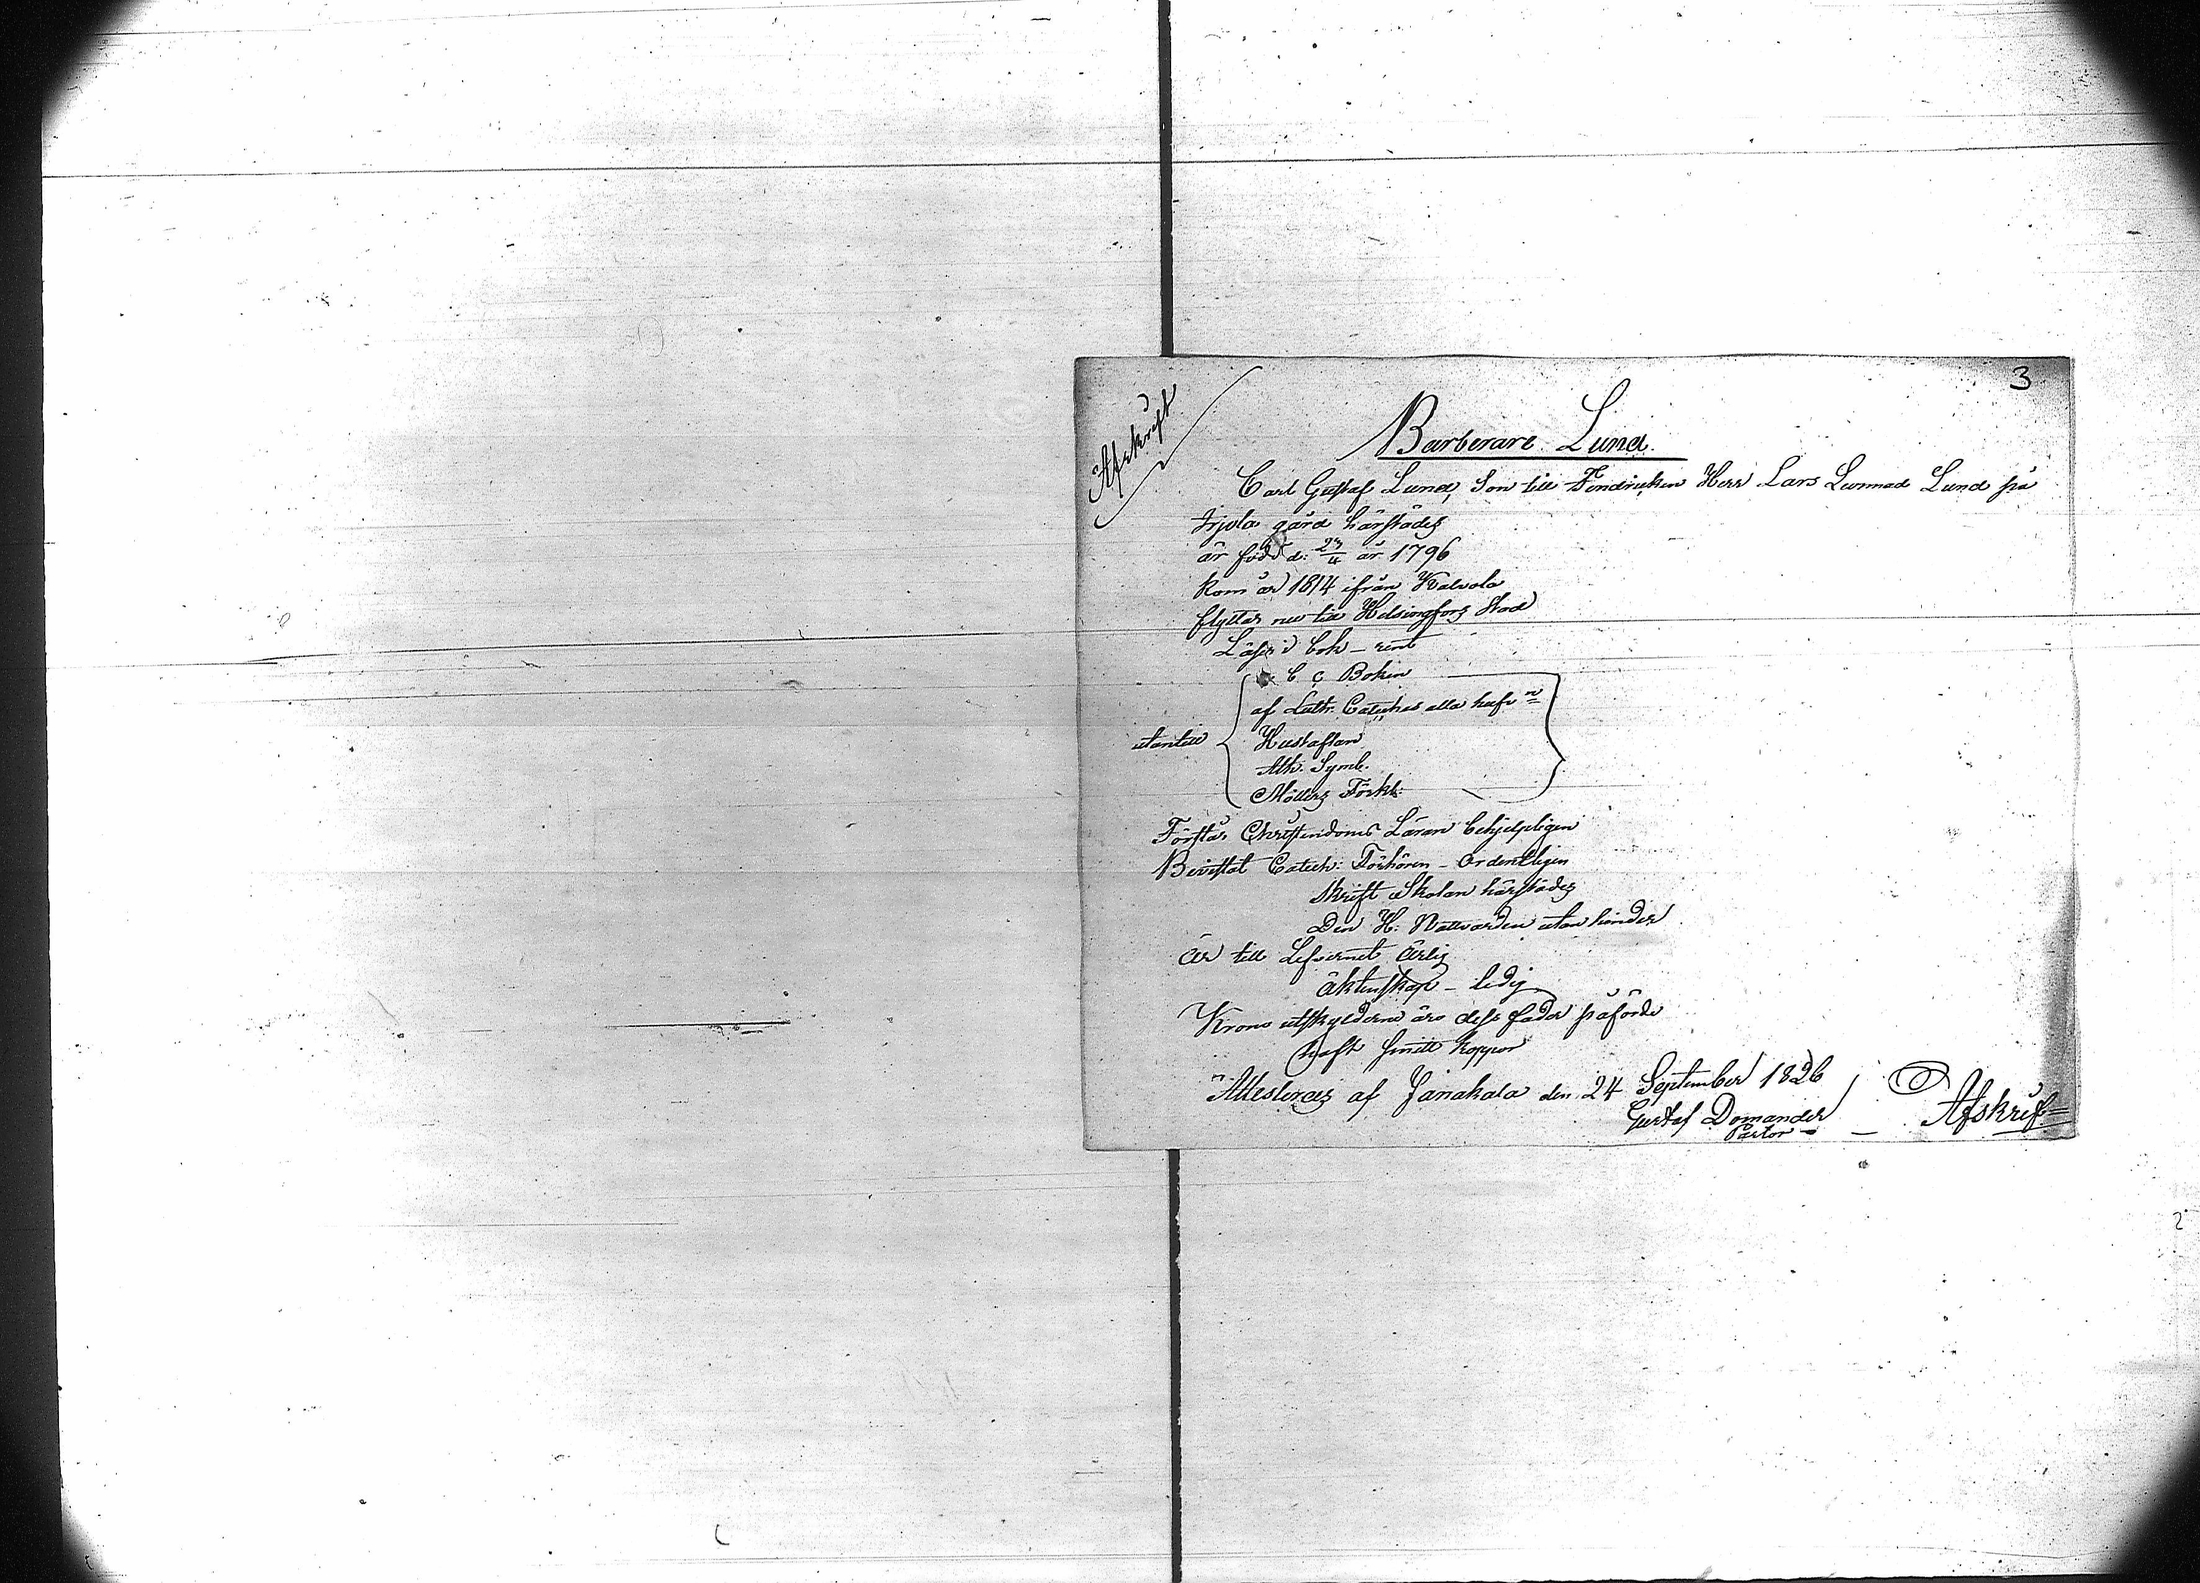 3
Afskrift
Barberare Lund.
Carl Gustaf Lund, Son till Fendricken Herr Lars Lund på
Irjala gård härstädes
är född d: 23/4 år 1796
kom år 1814 ifrån Kalvola
flyttar nu till Helsingfors Stad
Läser i bok - rent
utantill
A B C Boken
af Luth. Catches alla hufv n
Hustaflan
Ath. Symb.
Möllers Förkl:
Förstår Christendoms Läran behjelpligen
Bevistat Catech: Förhören - Ordentligen
Skrift Skolan härstädes
Den H. Nattvarden utan hinder
är till Lefvernet ärlig
äktenskap - ledig
Krono utskylderne äro dess fader påförde
haft koppor
Attesteras af Janakala den 24 September 1826
Gustaf Domander
Pastor
Afskrift